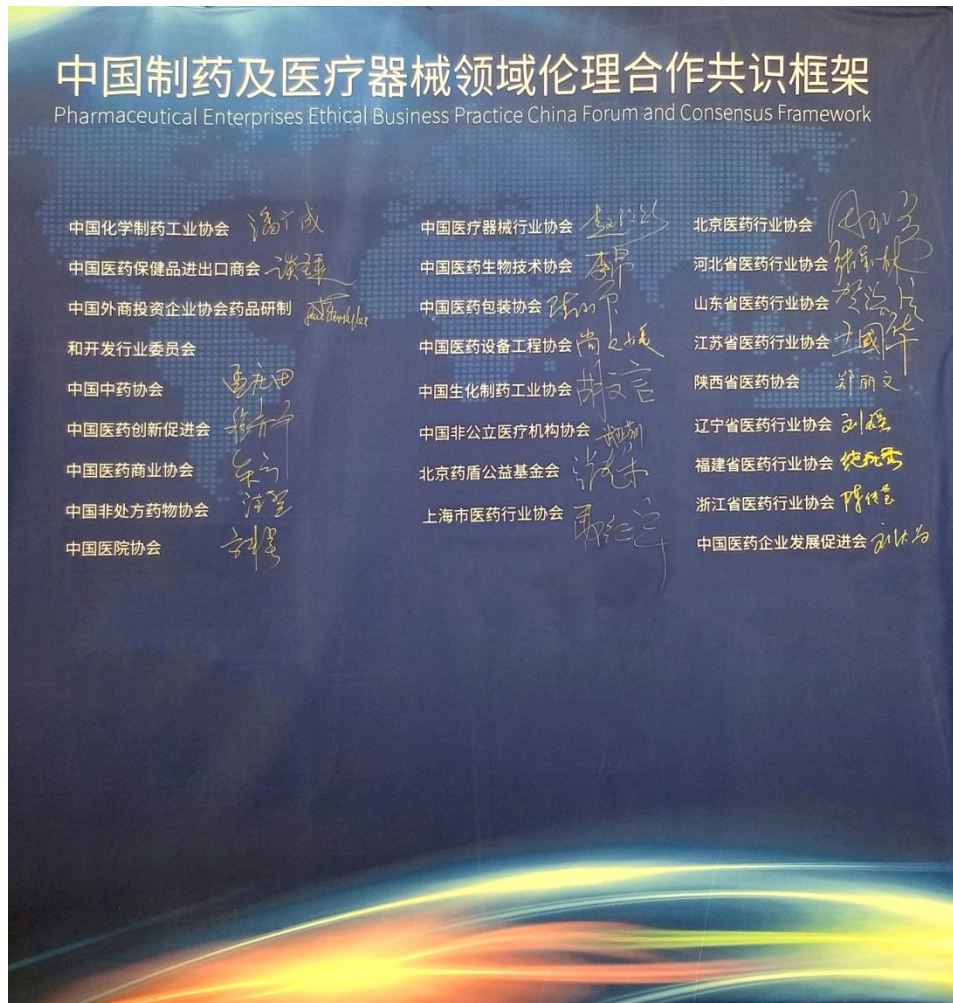 中国制药及医疗器械领域伦理合作共识框架
Pharmaceutical Enterprises Ethical Business Practice China Forum and Consensus Framework
中国化学制药工业协会 潘广成
中国医药保健品进出口商会
中国外商投资企业协会药品研制
和开发行业委员会
中国中药协会
中国医药创新促进会
中国医药商业协会
中国非处方药物协会
中国医院协会
中国医疗器械行业协会
中国医药生物技术协会
中国医药包装协会
中国医药设备工程协会
中国生化制药工业协会 胡文言
中国非公立医疗机构协会
北京药盾公益基金会
上海市医药行业协会
北京医药行业协会
河北省医药行业协会
山东省医药行业协会
江苏省医药行业协会 王國华
陕西省医药协会 郑丽文
辽宁省医药行业协会
福建省医药行业协会
浙江省医药行业协会
中国医药企业发展促进会